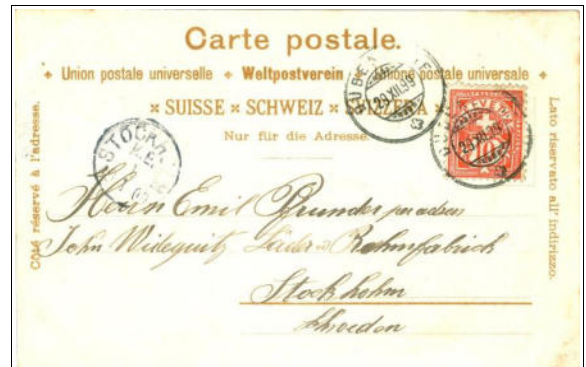 Carte postale.
Union postale universelle Weltpostverein Unione postale universale
SUISSE SCHWEIZ SVIZZERA
Nur für die Adresse
Côté réservé à l'adresse.
Lato riservato all' indirizzo.
STOCKH
29.XII.99
29.XII.99
10
Herrn Emil Brunder per adress
John Wideqvist Läder
Stockholm
Schweden